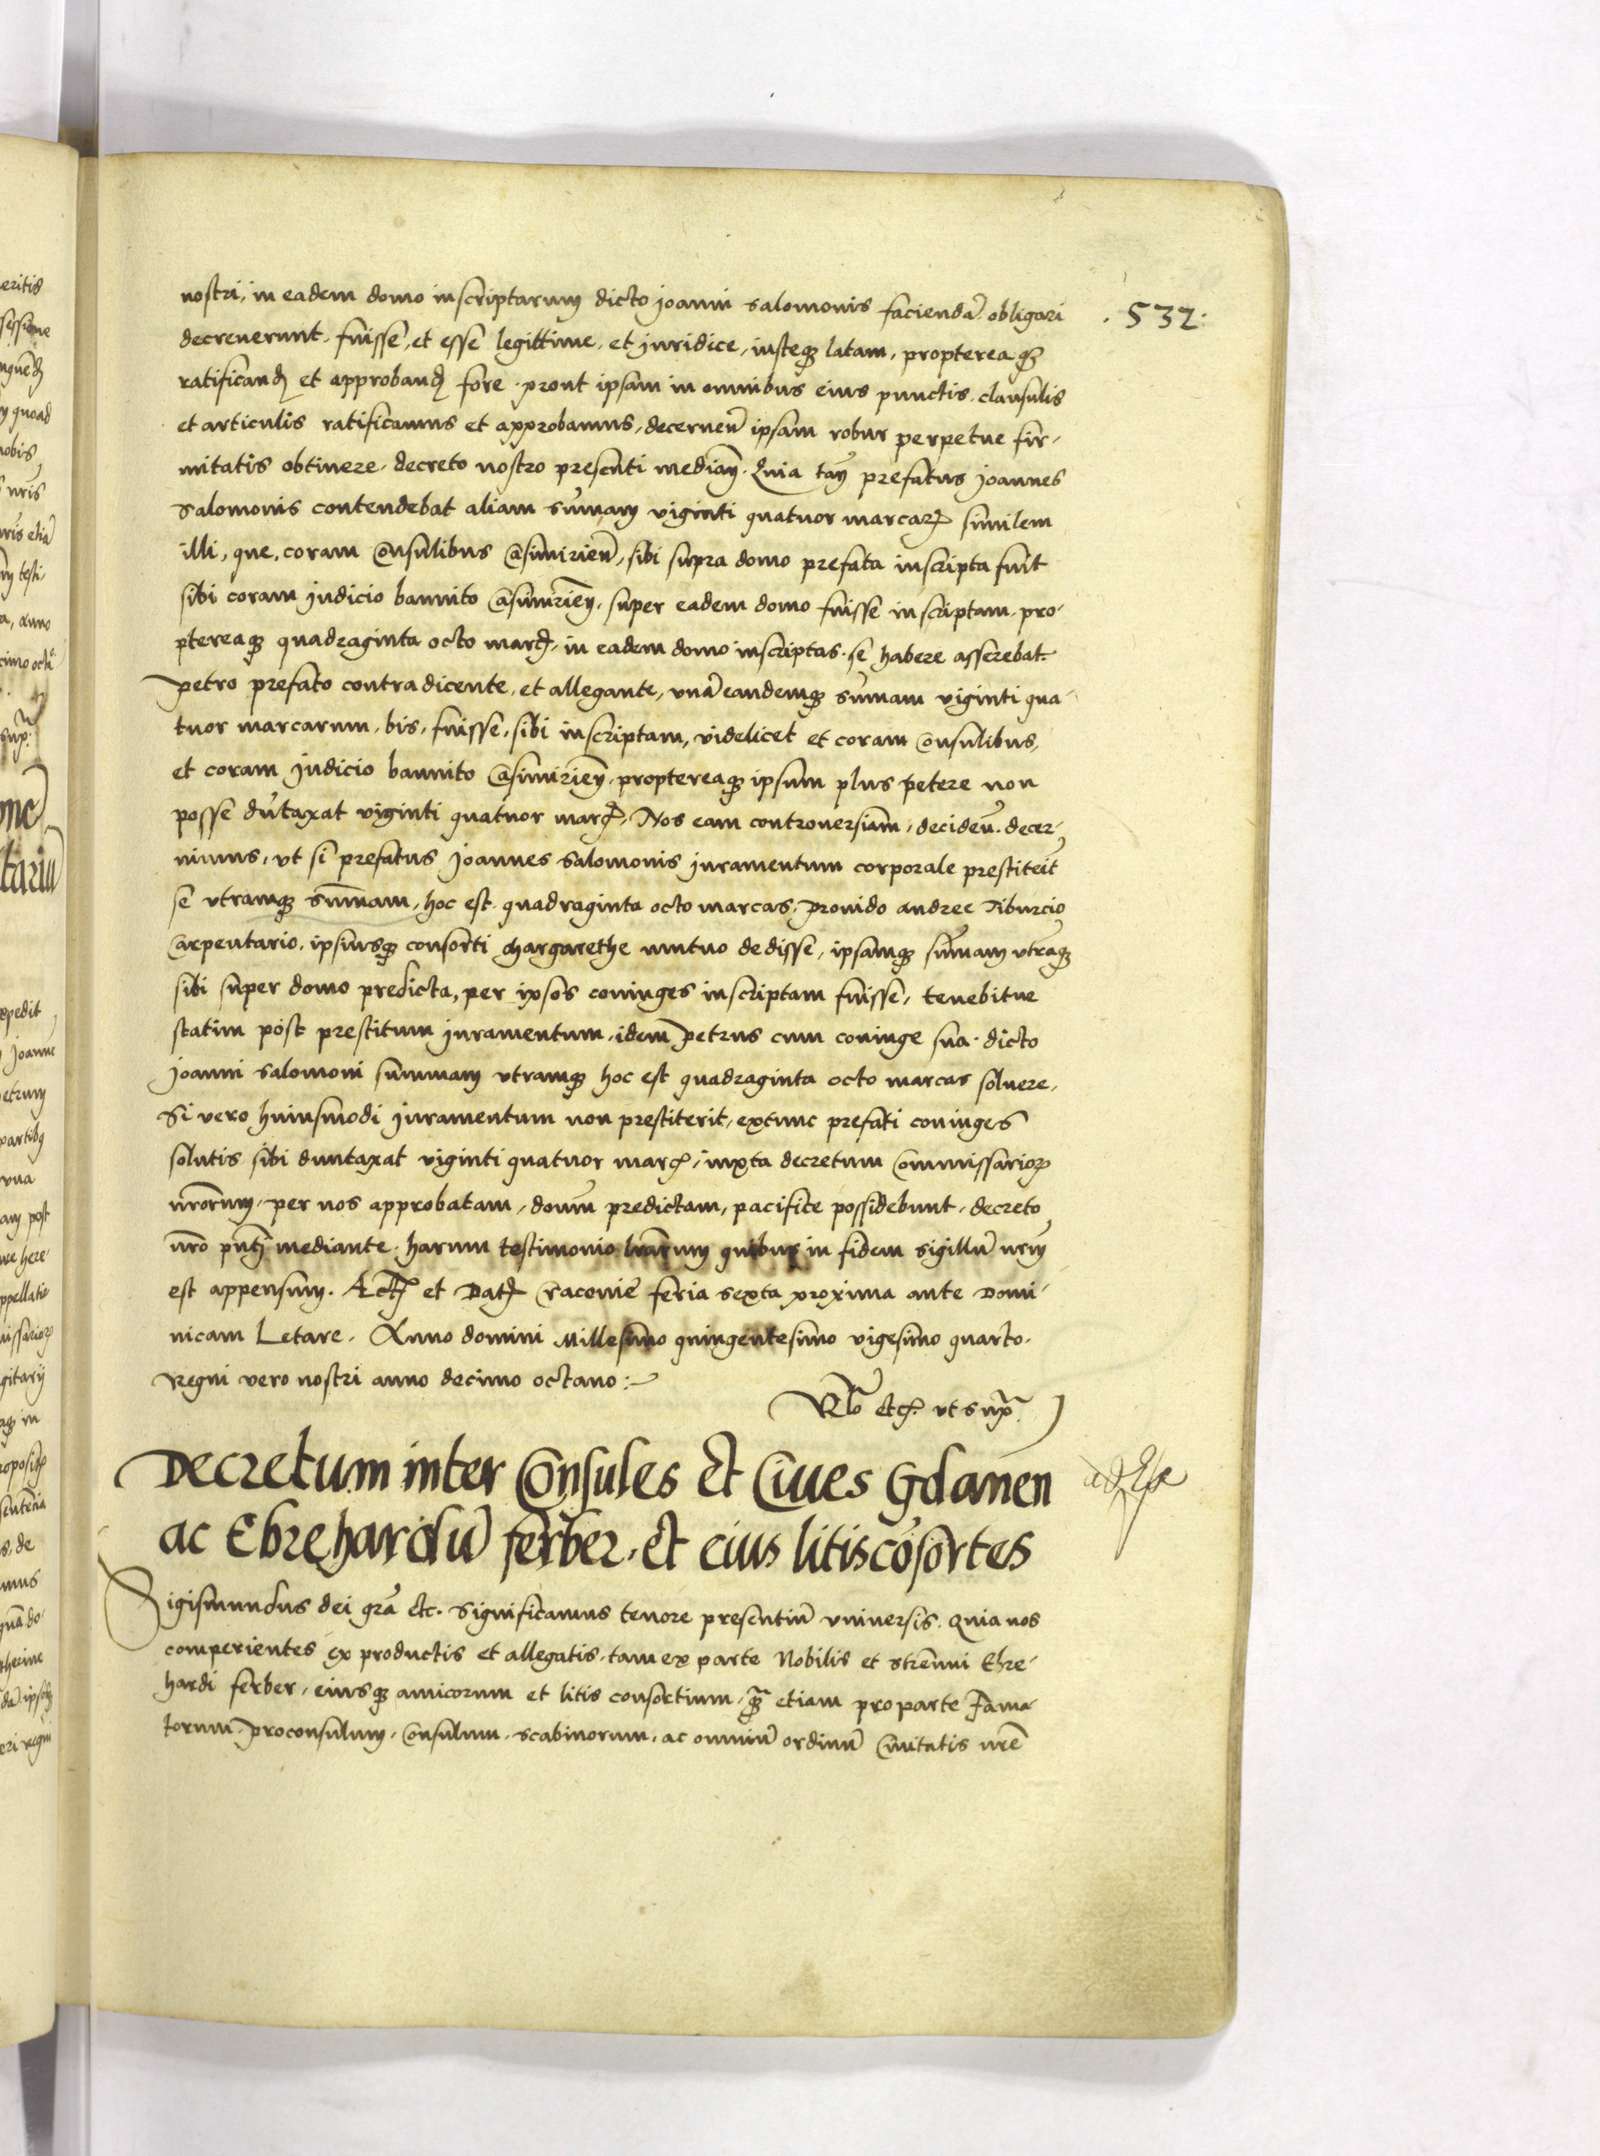 nostri, in eadem domo inscriptarum dicto Joanni Salomonis faciendā obligari
. 532 .
decreuerunt, fuisse, et esse legittime, et juridice, iusteqȝ latam, proptereaqȝ
ratificandꝭ et approbandꝭ fore, prout ipsam in omnibus eius punctis, clausulis
et articulis ratificamus et approbamus, decerneñ ipsam robur perpetue fir-
mitatis obtinere, decreto nostro presenti medianꝭ. Quia tañ prefatus Joannes
Salomonis contendebat aliam sūmam viginti quatuor marcarꝝ similem
illi, que, coram Consulibus Casimirieñ, sibi supra domo prefata inscripta fuit
sibi coram Judicio bannito Casimirieñ, super eadem domo fuisse inscriptam, pro-
ptereaqȝ quadraginta octo marcꝭ, in eadem domo inscriptas, se habere asserebat.
Petro prefato contradicente, et allegante, vnā eandemqȝ sūmam viginti qua-
tuor marcarum, bis, fuisse, sibi inscriptam, videlicet et coram Consulibus,
et coram Judicio bannito Casimirieñ, proptereaqȝ ipsum plus petere non
posse dūtaxat viginti quatuor marcꝭ, Nos eam controuersiam, decideñ, decer-
nimus, vt si prefatus Joannes Salomonis juramentum corporale prestiteīt
se vtramqȝ sūmam, hoc est quadraginta octo marcas, prouido Andree Tiburcio
Carpentario, ipsiusqȝ consorti Margarethe mutuo dedisse, ipsamqȝ sūmam vtrāqȝ
sibi super domo predicta, per ipsos coniuges inscriptam fuisse, tenebitur
statim post prestitum juramentum, idem Petrus cum coniuge sua, dicto
Joanni Salomoni summam vtramqȝ hoc est quadraginta octo marcas soluere,
Si vero huiusmodi juramentum non prestiterit, extunc prefati coniuges
solutis sibi duntaxat viginti quatuor marcꝭ, iuxta decretum Commissariorꝝ
nr̄orum, per nos approbatam, domū predictam, pacifice possidebunt, decreto
nr̄o pn̄tj mediante, harum testimonio lr̄arum quibus in fidem sigillū nr̄um
est appensum. Actꝭ et Datꝭ Cracouie feria sexta proxima ante Domi-
nicam Letare, Anno domini Millesimo quingentesimo vigesimo quarto,
Regni vero nostri anno decimo octauo:
Rlō etcꝭ vt supᵃ
Decretum inter Consules et Ciues Gdanen
ac Ebrehardū Ferber, et eius litiscōsortes
Sigismundus dei grā etc. Significamus tenore presentiū vniuersis. Quia nos
comperientes ex productis et allegatis, tam ex parte Nobilis et strennui Ebre-
hardi Ferber, eiusqȝ amicorum et litis consortium, qᵃ etiam pro parte Fama-
torum, proconsulum, Consulum, scabinorum, ac omniū ordinū Ciuitatis nr̄e